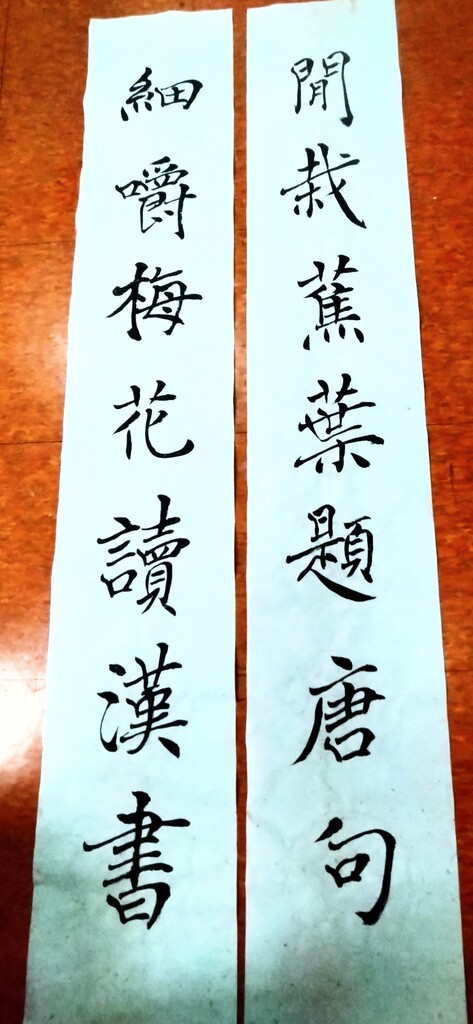 閒栽蕉葉題唐句
細嚼梅花讀漢書